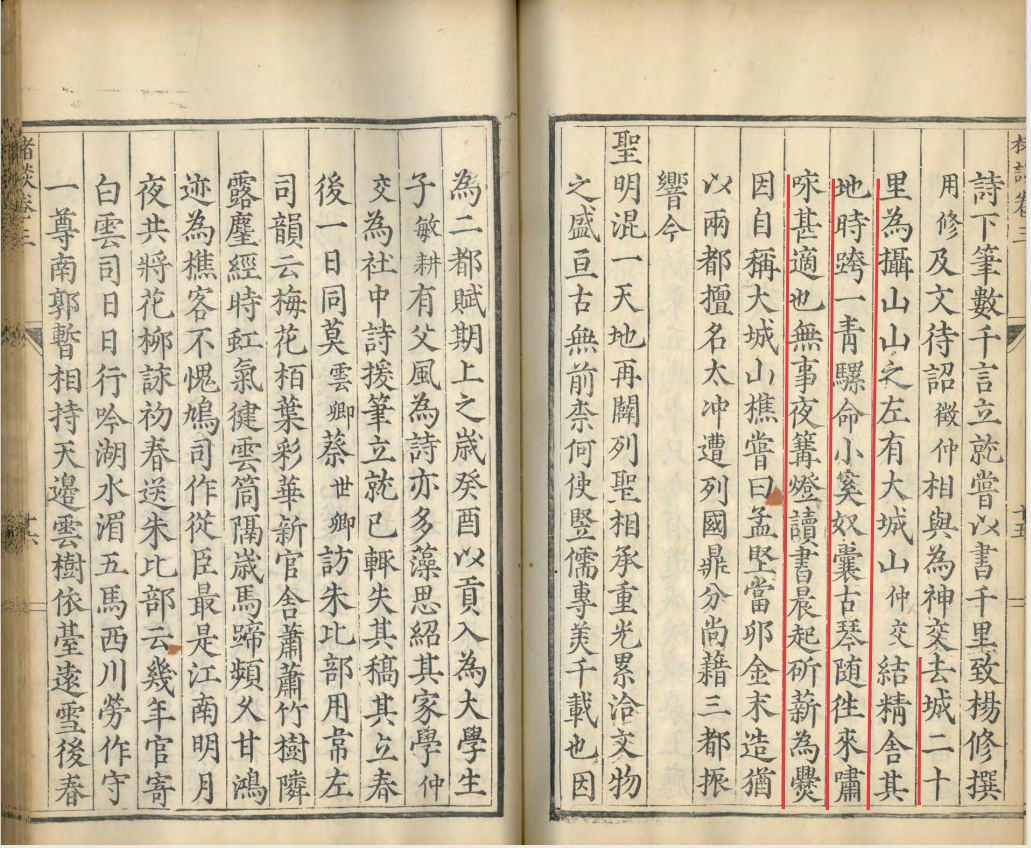 詩下筆數千言立就嘗以書千里致楊修撰
用修及文待詔徵仲相與為神交去城二十
里為攝山山之左有大城山仲交結精舍其
地時跨一青騾命小奚奴囊古琴随往來嘯
咏甚適也無事夜篝燈讀書晨起斫薪為爨
因自稱大城山樵嘗曰孟堅當卯金末造猶
以兩都擅名太冲遭列國鼎分尚藉三都振
響今
聖明混一天地再闢列聖相承重光累洽文物
之盛亘古無前柰何使竪儒專美千載也因
為二都賦期上之歲癸酉以貢入為大學生
子敏耕有父風為詩亦多藻思紹其家學仲
交為社中詩援筆立就已輙失其稿其立春
後一日同莫雲卿蔡世卿訪朱比部用韋左
司韻云梅花栢葉彩華新官舍蕭蕭竹樹隣
露麈經時虹氣徤雲筒隔歲馬蹄頻久甘鴻
迹為樵客不愧鳩司作從臣最是江南明月
夜共將花柳詠初春送朱比部云幾年官寄
白雲司日日行吟湖水湄五馬西川勞作守
一尊南郭暫相持天邊雲樹依臺遠雪後春
卷三
十五
十六